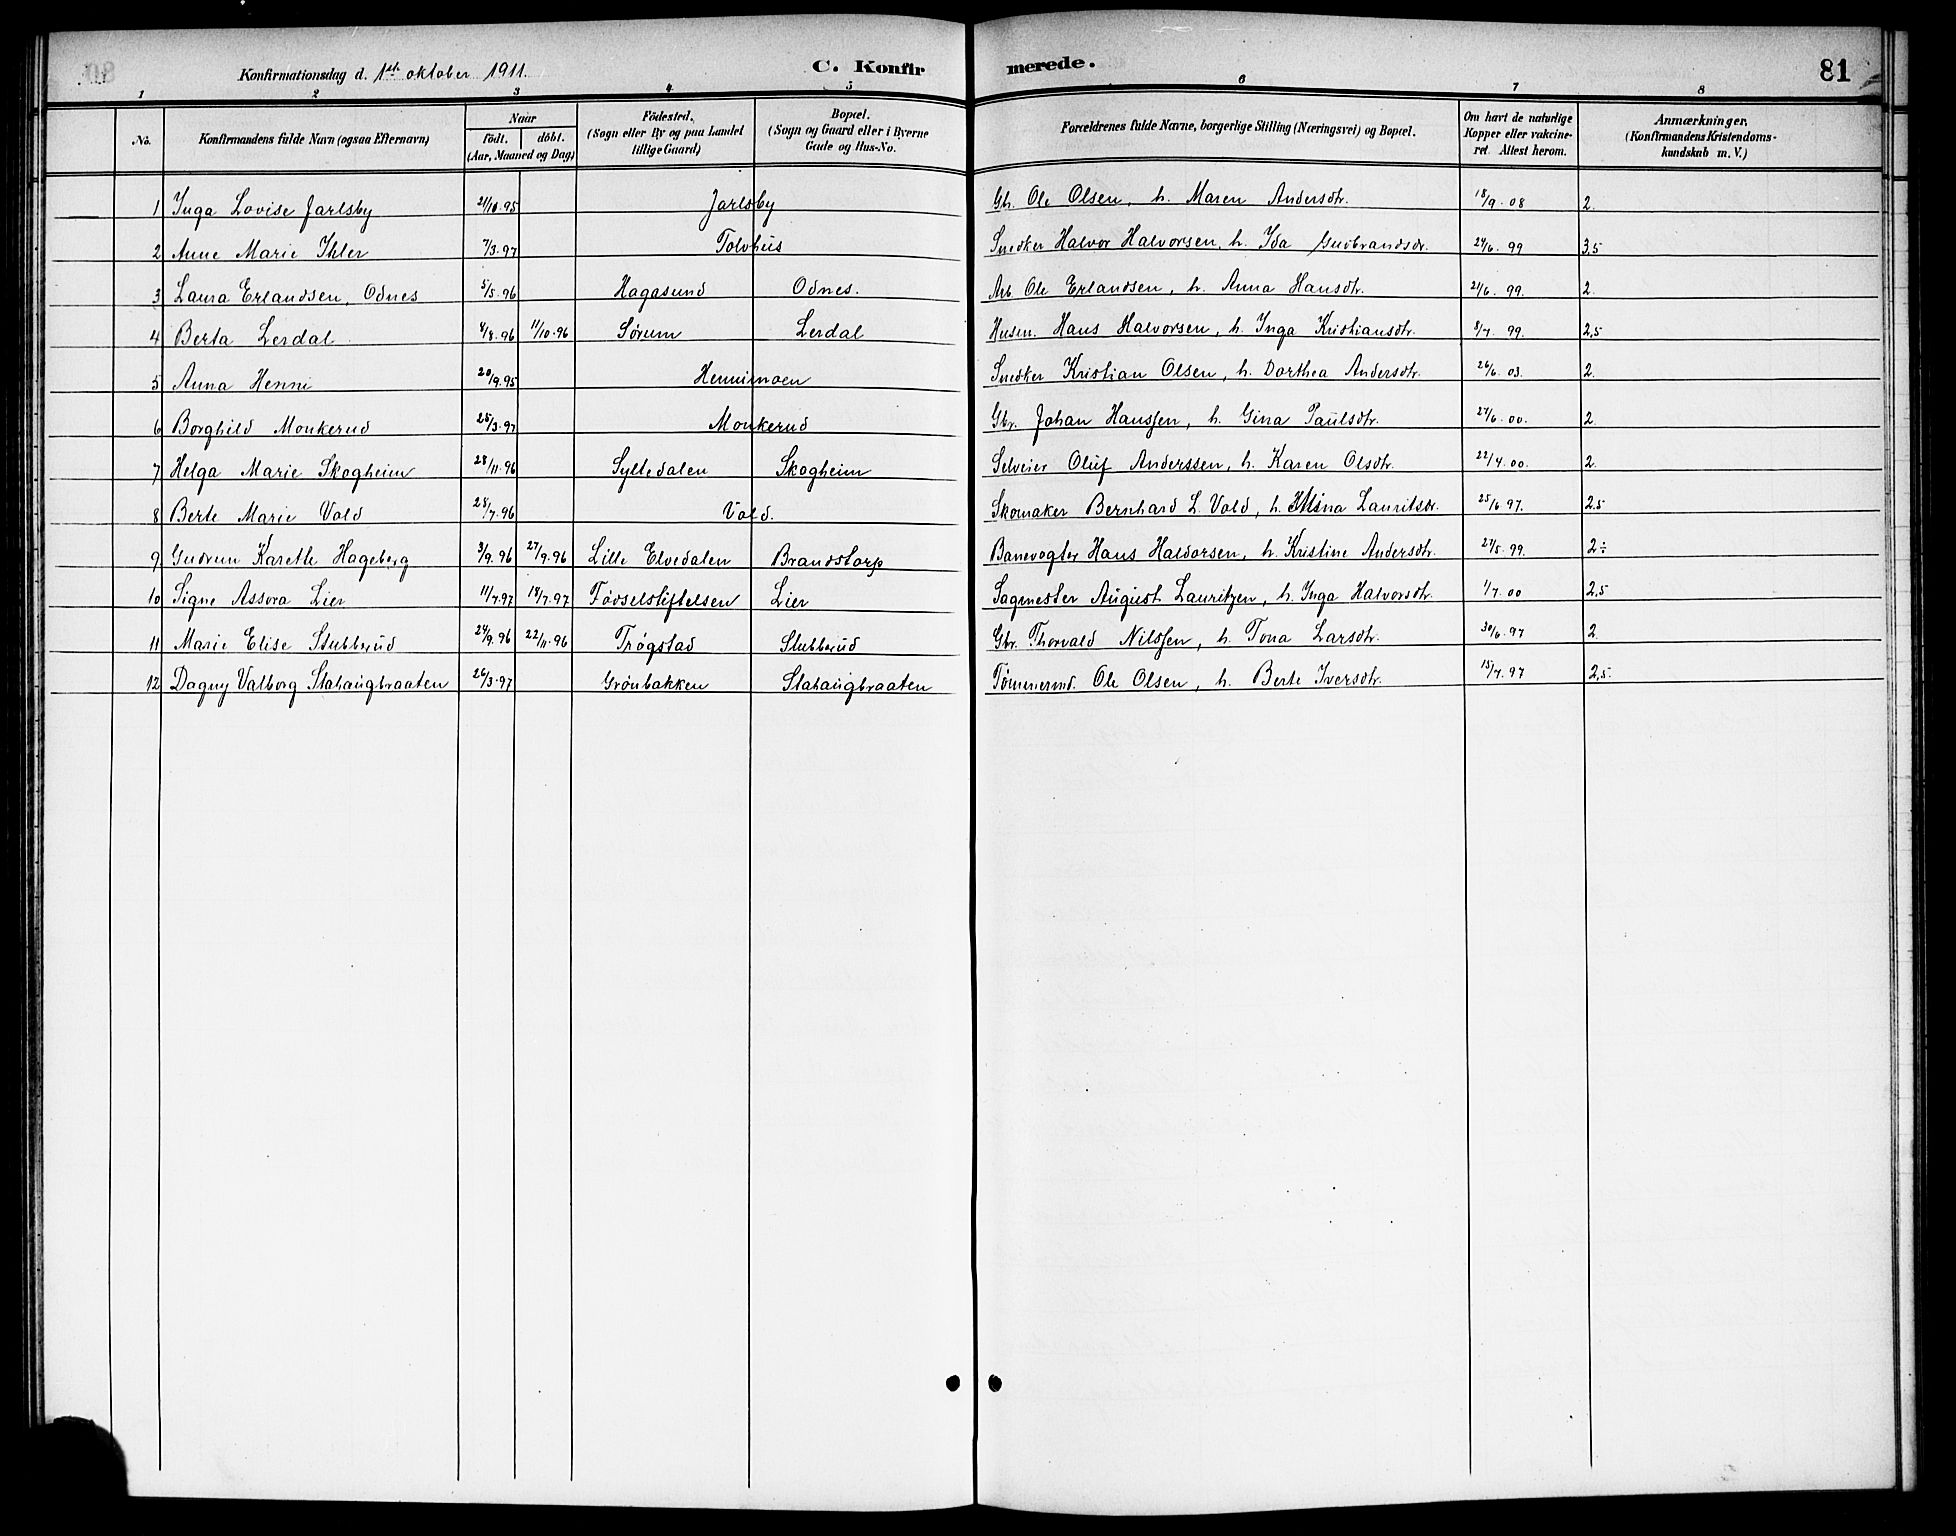 Konfirmationsdag d. 1ste oktober 1911.
C. Konfirmerede.
81
1 2 3 4 5 6 7 8
No.
Konfirmandens fulde Navn (ogsaa Efternavn)
Naar
födt. döbt.
(Aar, Maaned og Dag)
Födested.
(Sogn eller By og paa Landet
tillige Gaard)
Bopæl.
(Sogn og Gaard eller i Byerne
Gade og Hus-No.
Forældrenes fulde Navne, borgerlige Stilling (Næringsvei) og Bopæl.
Om havt de naturlige
Kopper eller vakcine-
ret. Attest herom.
Anmærkninger.
(Konfirmandens Kristendoms-
kundskab m. V.)
1 Inga Lovise Jarlsby 21/10.95 Jarlsby Gbr. Ole Olsen, h. Maren Andersdtr. 18/9.08 2.
2 Anne Marie Ihler 7/3.97 Tolvhus Snedker Halvor Halvorsen, h. Ida Gudbrandsdr. 24/6.99 3,5
3 Laura Erlandsen, Odnes 5/5.96 Hagasund Odnes. Arb. Ole Erlandsen, h. Anna Hansdtr. 21/6.99. 2.
4 Berta Lerdal 4/8.96 11/10.96 Sørum Lerdal Husm. Hans Halvorsen, h. Inga Kristiansdtr. 8/7.99. 2,5
5 Anna Henni 20/9.95 Hennimoen Snedker Kristian Olsen, h. Dorthea Andersdtr. 26/6.03. 2.
6 Borghild Monkerud 25/3.97 Monkerud Gbr. Johan Hanssen, h. Gina Paulsdtr. 27/6.00. 2.
7 Helga Marie Skogheim 28/11.96 Syltedalen Skogheim Selveier Oluf Anderssen, h. Karen Olsdtr. 22/4.00. 2.
8 Berte Marie Vold 28/7.96 Vold. Skomaker Bernhard L. Vold, h. Mina Lauritsdr. 25/6 97. 2.5
9 Gudrun Karethe Hageberg 3/9.96 27/9.96 Lille Elvedalen Brandstorp Banevogter Hans Halvorsen, h. Kristine Andersdtr. 27/5.99. 2÷
10 Signe Assora Lier 11/7.97 18/7.97 Fødselstiftelsen Lier Sagmester August Lauritzen, h. Inga Halvorsdtr. 1/7.00 2,5
11 Marie Elise Stubberud 24/9.96 22/11.96 Trøgstad Stubberud Gbr. Thorvald Nilssen, h. Tona Larsdtr. 30/6.97 2.
12 Dagny Valborg Stahaugbraaten 26/3.97 Grønbakken Stahaugbraaten Tømmermd. Ole Olsen, h. Berte Iversdtr. 15/7.97 2,5.